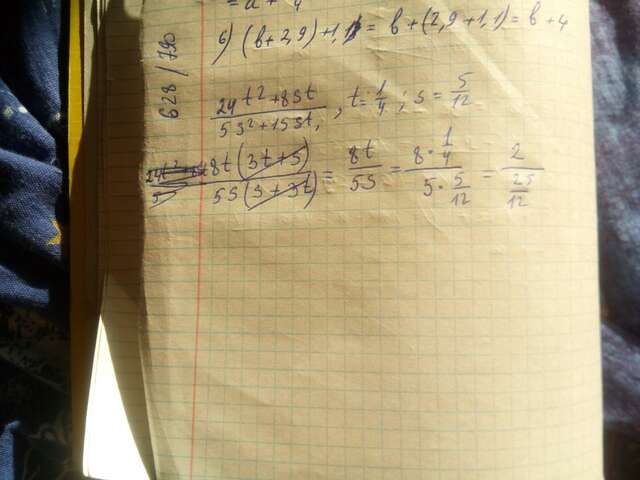 = a + 4
б) (в+2,9)+1,1 = в+(2,9+1,1) = в+4
628/790
(24t²+8st)/(5s²+15st), t=1/4; s=5/12
(8t(3t+s))/(5s(s+3t)) = 8t/5s = (8·1/4)/(5·5/12) = 2/(25/12)